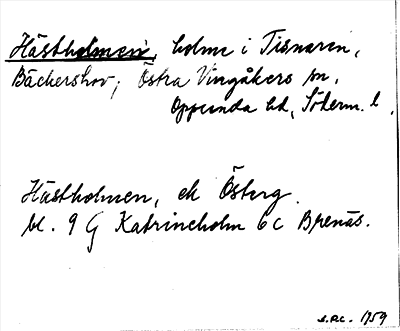 Hästholmen, holme i Tisnaren,
Bäckershov, Östra Vingåkers sn,
Oppunda hd, Söderm. l.
Hästholmen, ek Österg.
bl. 9 G Katrineholm 6 c Brenäs.
1959